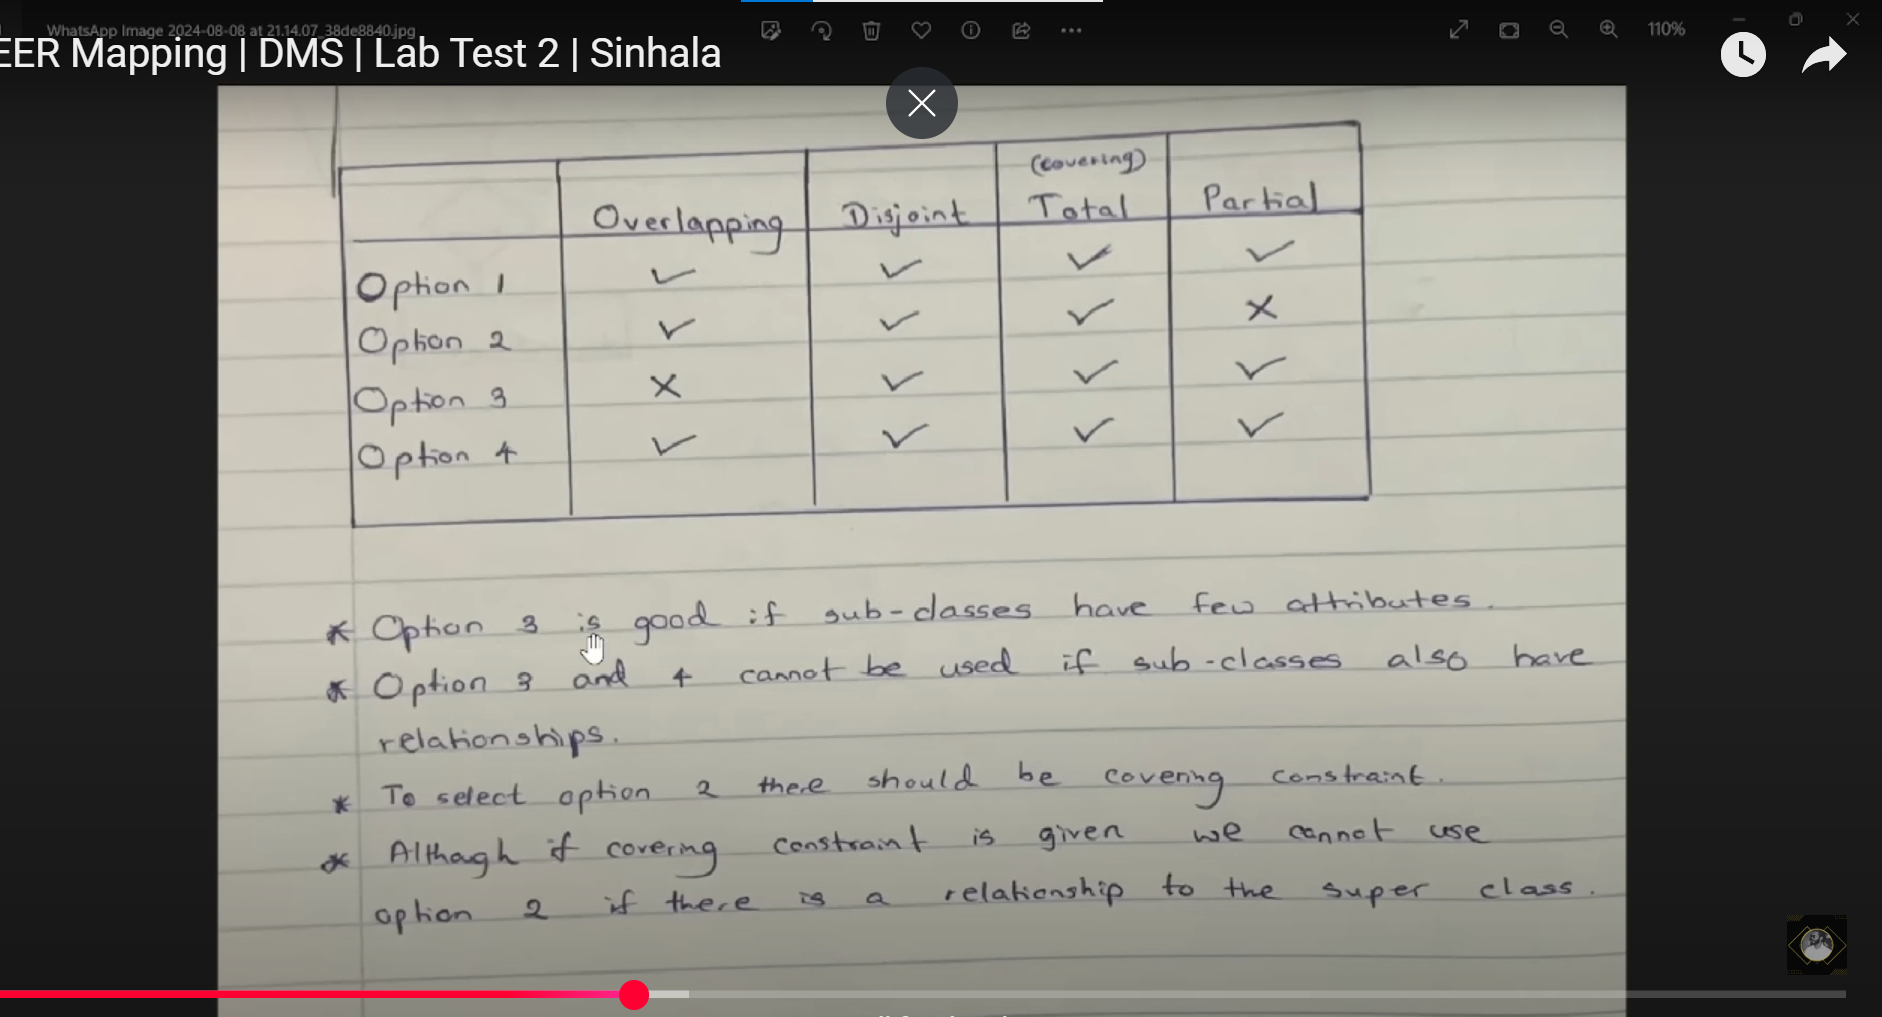 WhatsApp Image 2024-08-08 at 21.14.07_38de8840.jpg
110%
EER Mapping | DMS | Lab Test 2 | Sinhala
(covering)
Overlapping Disjoint Total Partial
Option 1 ✓ ✓ ✓ ✓
Option 2 ✓ ✓ ✓ ×
Option 3 × ✓ ✓ ✓
Option 4 ✓ ✓ ✓ ✓
* Option 3 is good if sub-classes have few attributes.
* Option 3 and 4 cannot be used if sub-classes also have
relationships.
* To select option 2 there should be covering constraint.
* Althogh if covering constraint is given we cannot use
option 2 if there is a relationship to the super class.